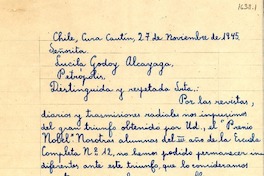 1630.1
Chile, Cura Cautín, 27 de Noviembre de 1945.
Señorita.
Lucila Godoy Alcayaga,
Petrópolis.
Distinguida y respetada Srta.:
Por las revistas,
diarios y trasmisiones radiales nos impusimos
del gran triunfo obtenido por Ud., el "Premio
Nobel". Nosotros alumnos del III año de la Escuela
Completa N.º 12, no hemos podido permanecer in
diferentes ante este triunfo, que lo consideramos